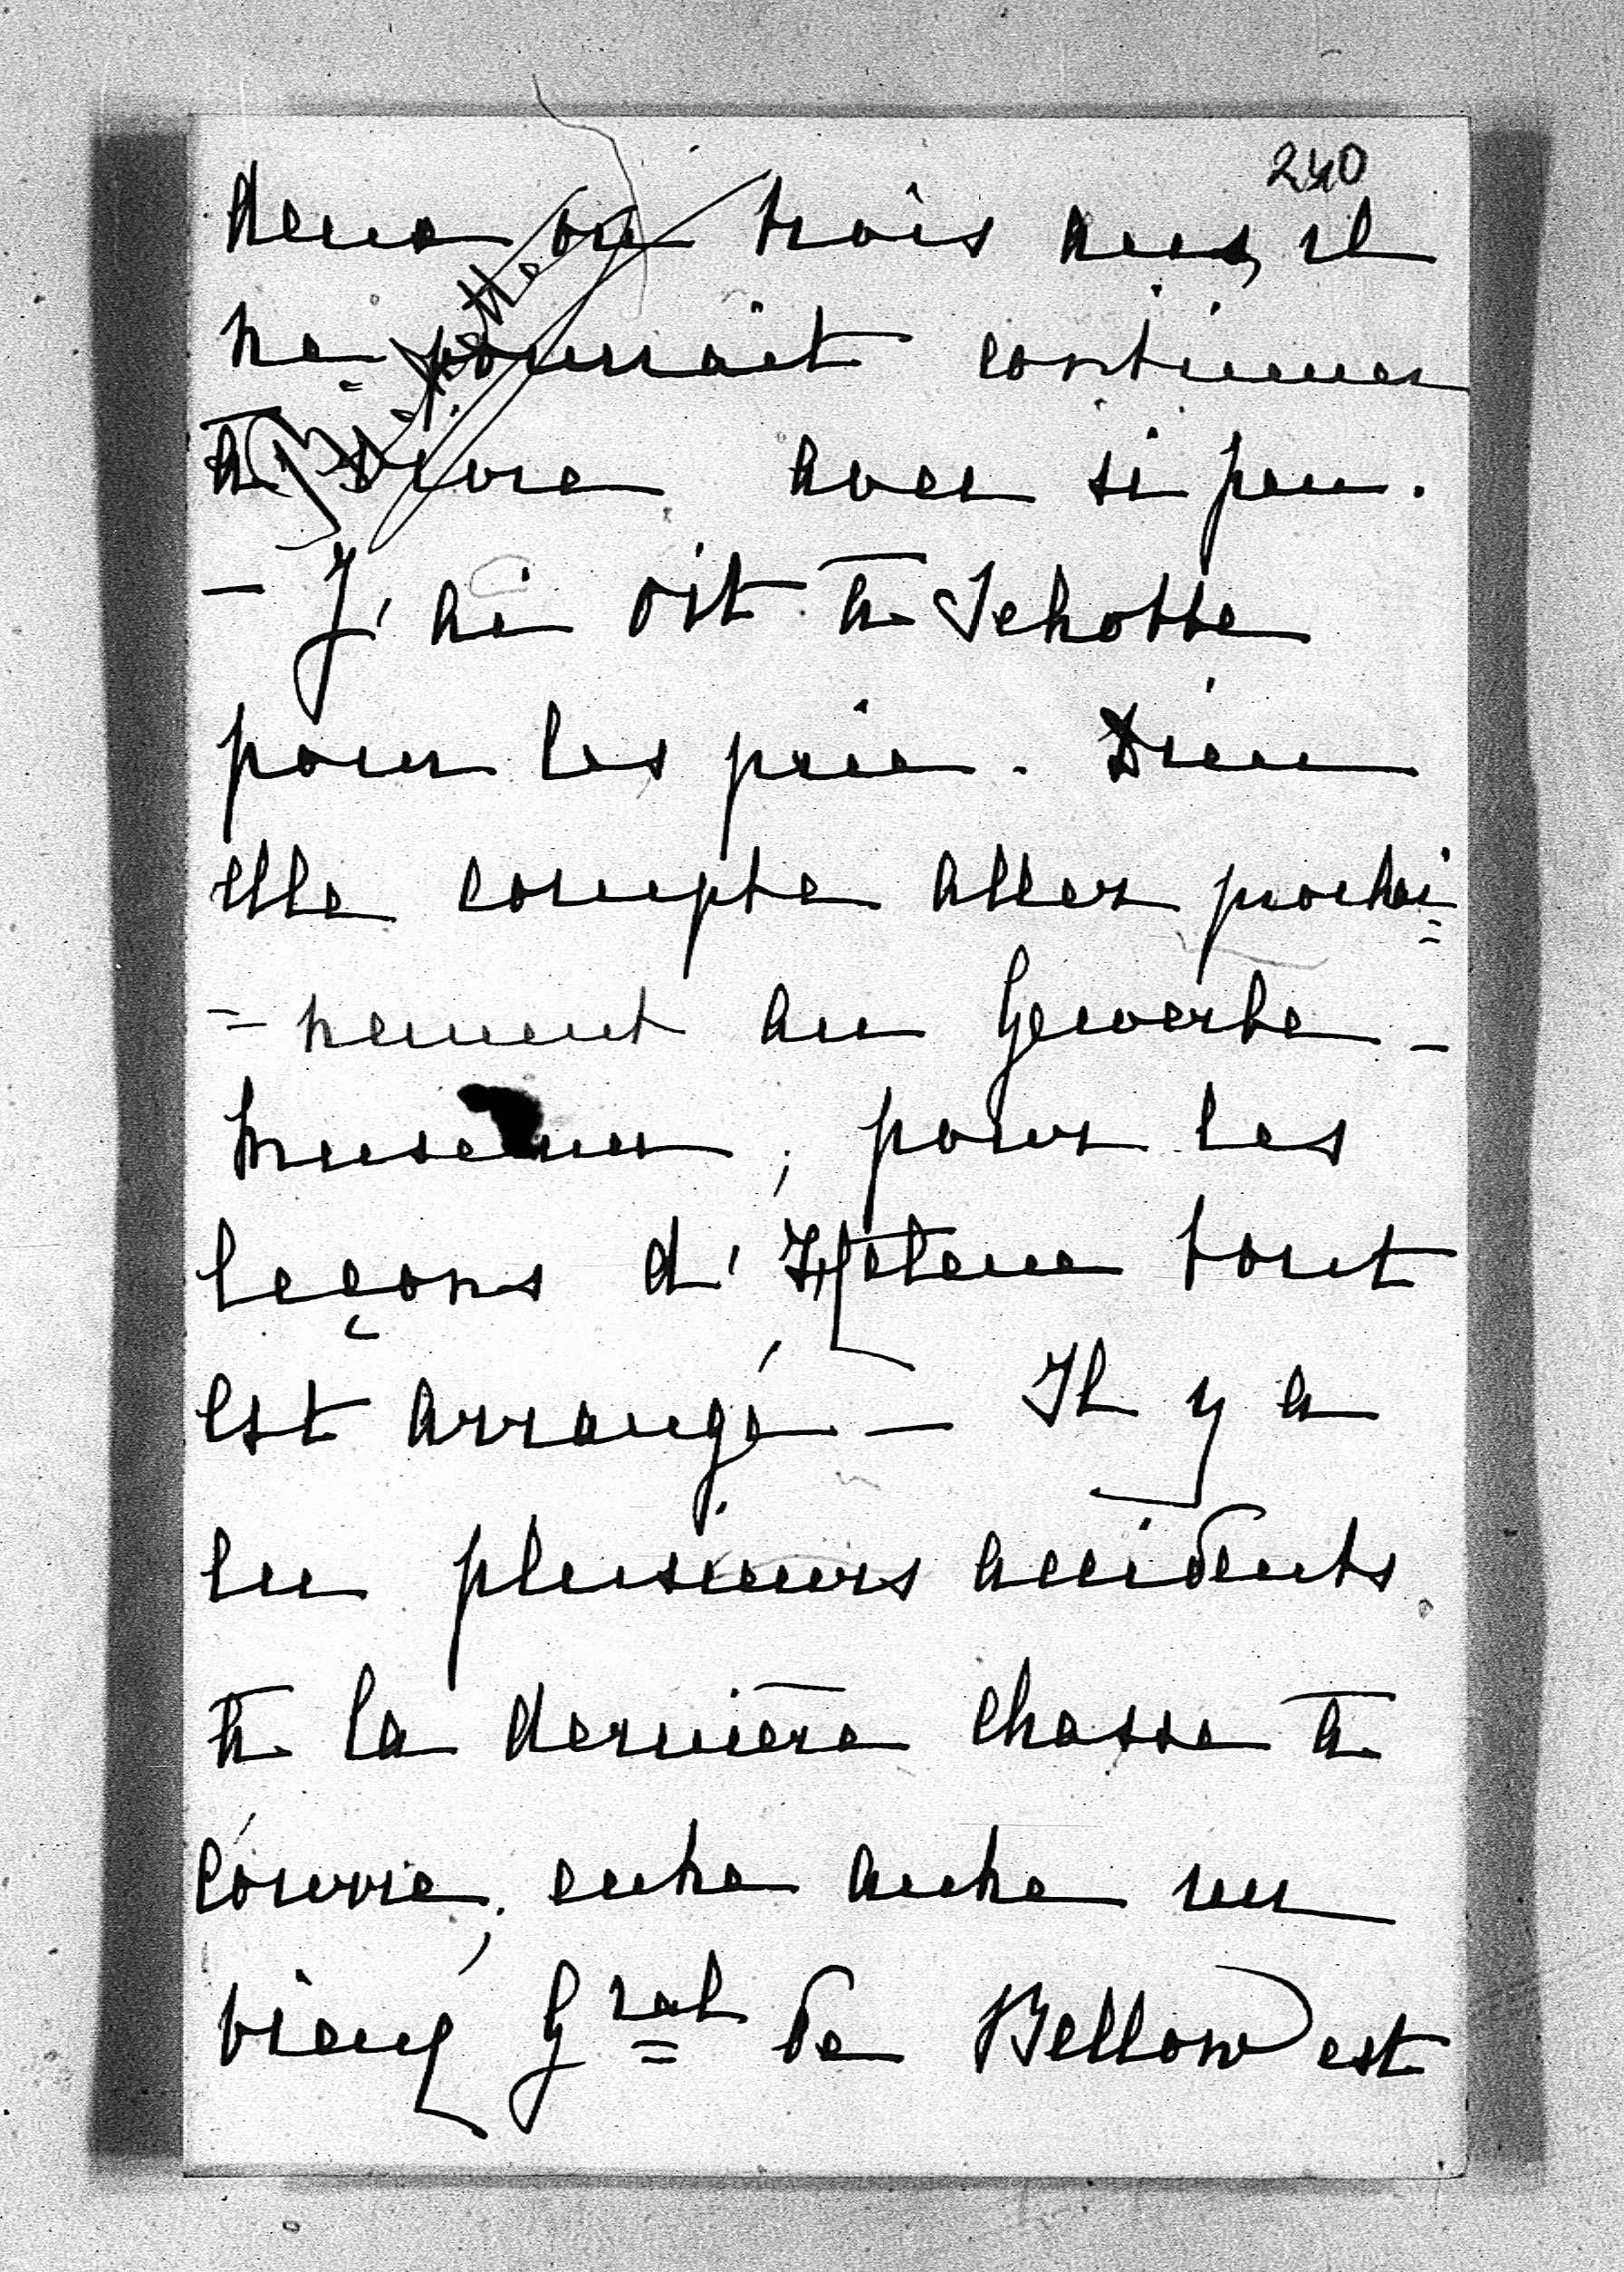 240
deux ou trois ans, il
ne pourrait continuer
à vivre avec si peu.
— J'ai dit à Schotte
pour les prie. Dieu
elle compte aller prochai=
=nement au Gewerbe-
museum, pour les
leçons d'Hélène tout
est arrangé — Il y a
eu plusieurs accidents
à la dernière chasse à
courre, entre autre un
vieux Gral de Bellow est